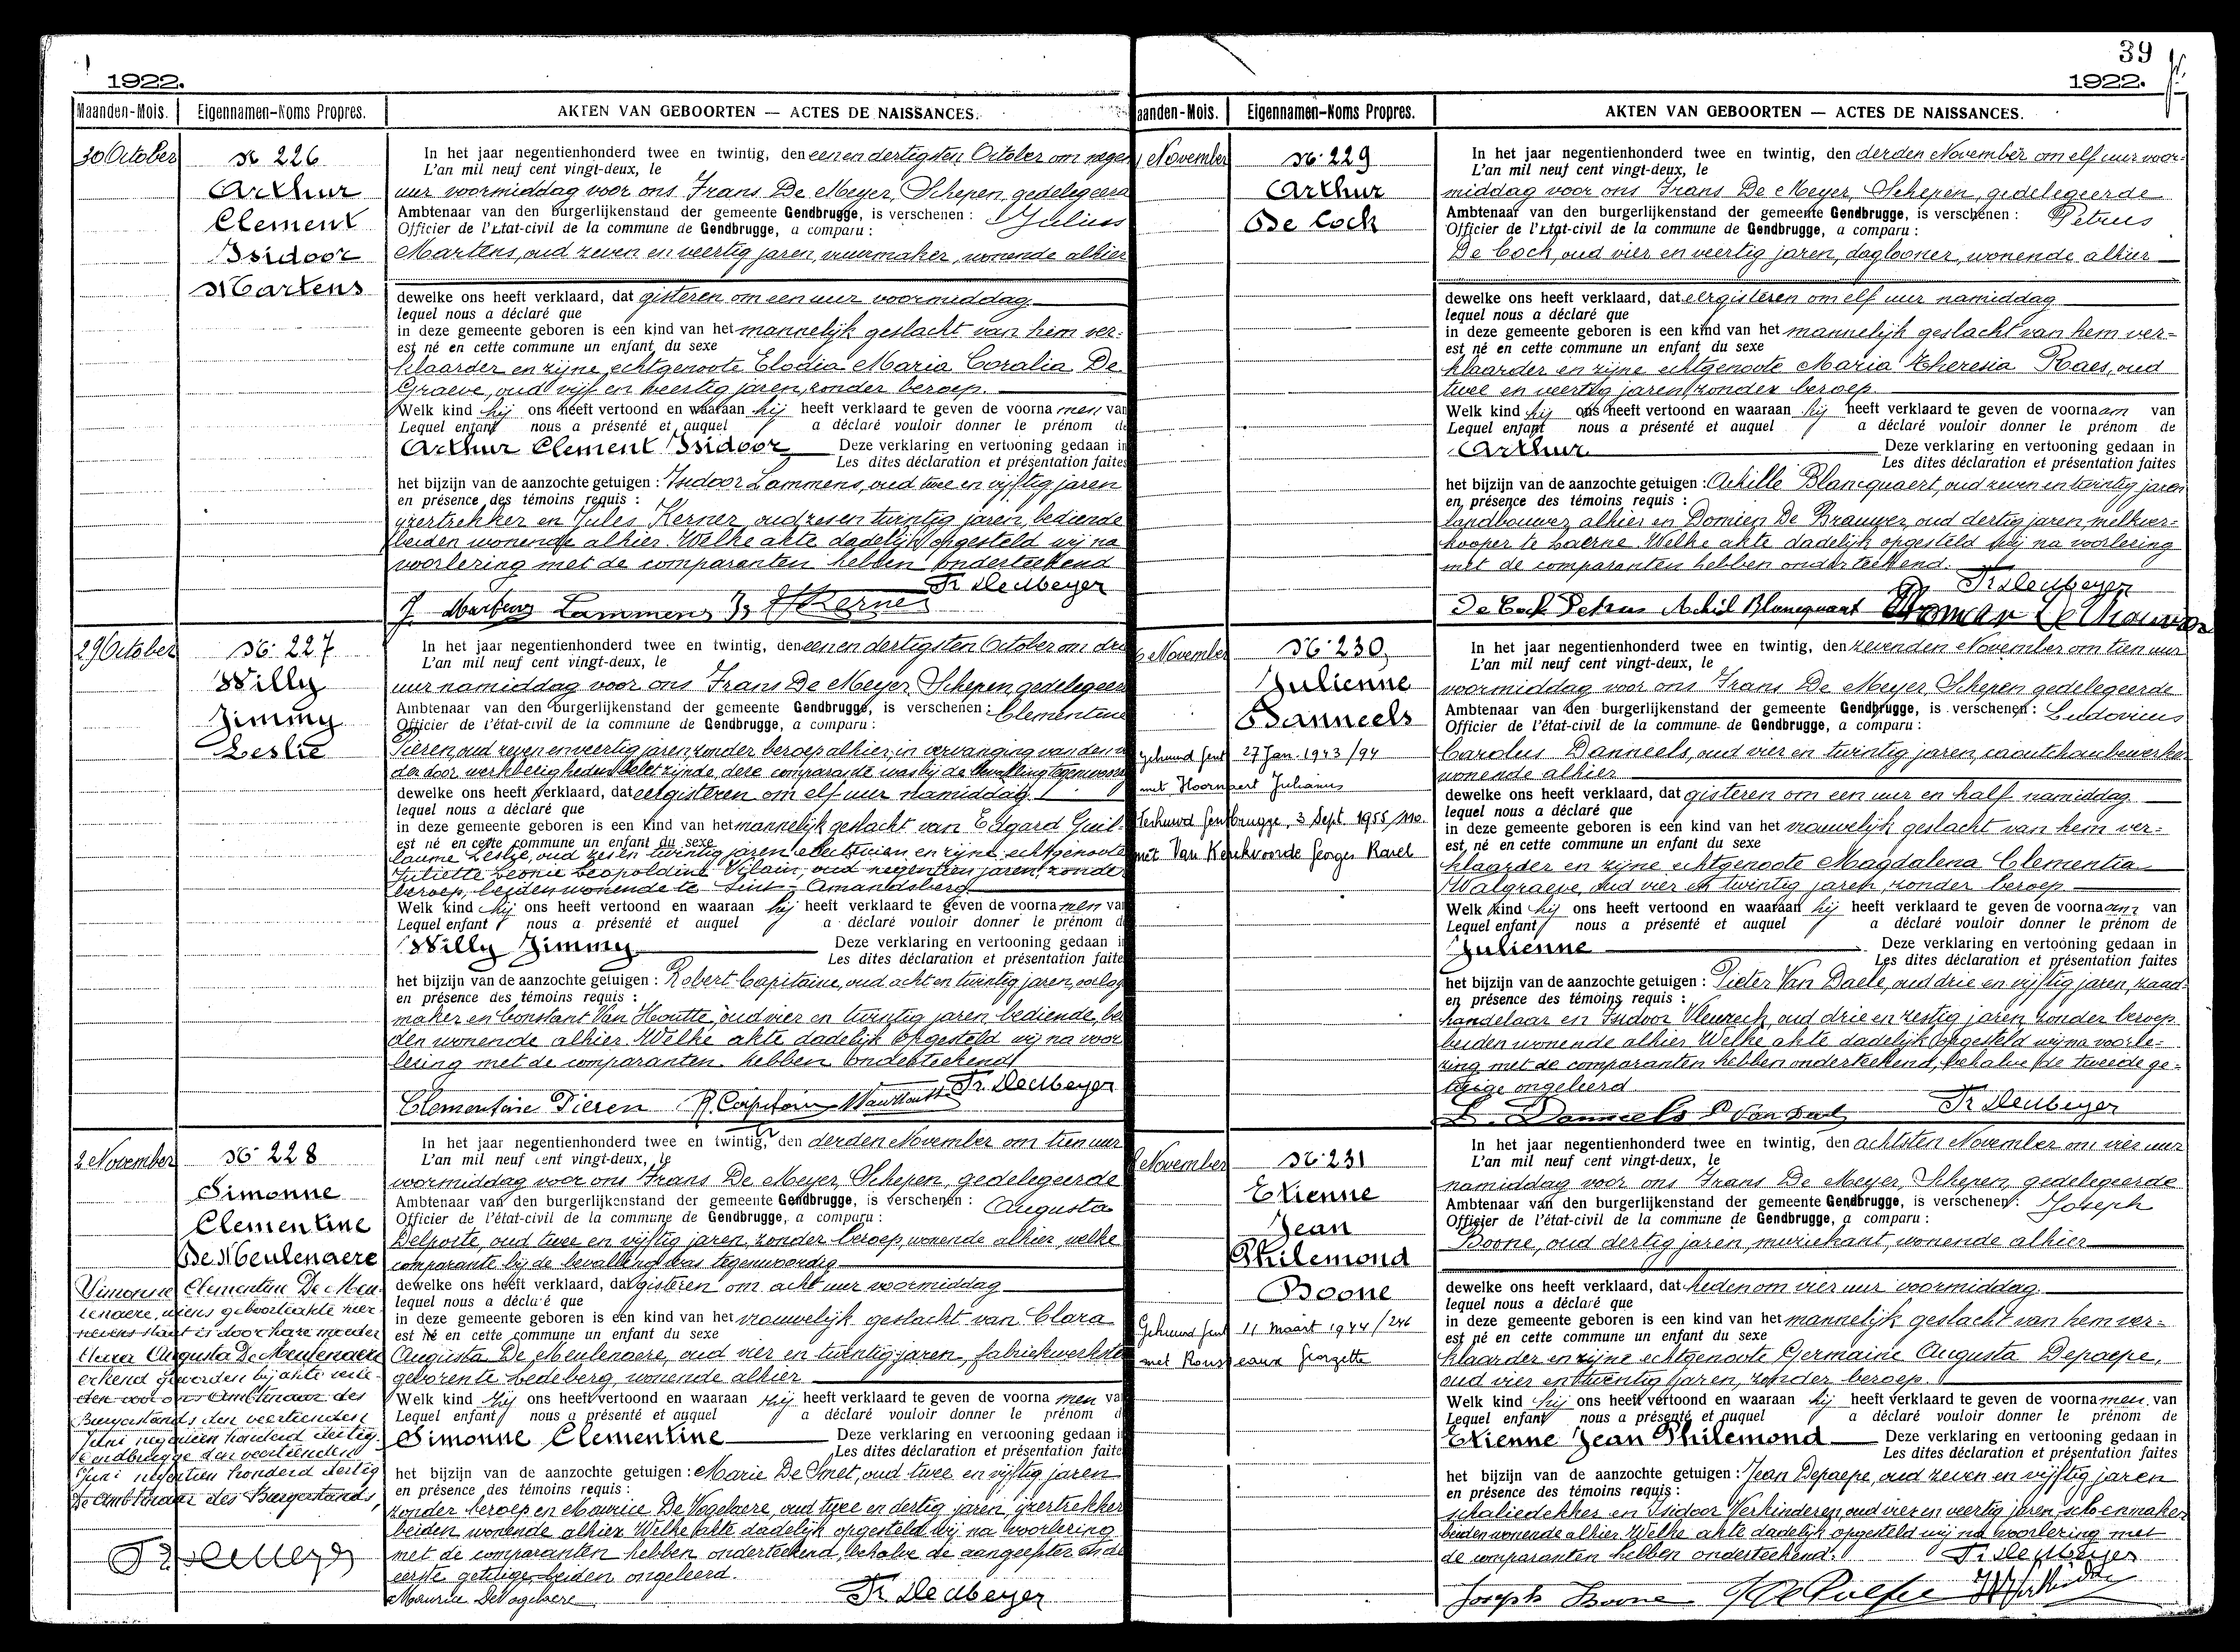 1922.
Maanden-Mois. Eigennamen-Noms Propres. AKTEN VAN GEBOORTEN — ACTES DE NAISSANCES.
30 October
N: 226
Arthur
Clement
Isidoor
Martens
In het jaar negentienhonderd twee en twintig, den eenendertigsten October om negen
L'an mil neuf cent vingt-deux, le
uur voormiddag voor ons Frans De Meyer, Schepen, gedelegeerd
Ambtenaar van den burgerlijkenstand der gemeente Gendbrugge, is verschenen : Julius
Officier de l'Etat-civil de la commune de Gendbrugge, a comparu :
Martens, oud zeven en veertig jaren, vuurmaker, wonende alhier
dewelke ons heeft verklaard, dat gisteren om een uur voormiddag
lequel nous a déclaré que
in deze gemeente geboren is een kind van het mannelijk geslacht van hem ver=
est né en cette commune un enfant du sexe
klaarder en zijne echtgenoote Elodia Maria Coralia De
Graeve, oud vijf en veertig jaren, zonder beroep.
Welk kind hij ons heeft vertoond en waaraan hij heeft verklaard te geven de voorna men van
Lequel enfant nous a présenté et auquel a déclaré vouloir donner le prénom de
Arthur Clement Isidoor Deze verklaring en vertooning gedaan in
Les dites déclaration et présentation faites
het bijzijn van de aanzochte getuigen : Isidoor Lammens, oud twee en vijftig jaren
en présence des témoins requis :
ijzertrekker en Jules Kerner, oud zes en twintig jaren, bediende
beiden wonende alhier. Welke akte dadelijk opgesteld wij na
voorlezing met de comparanten hebben onderteekend
Fr DeMeyer
J. Martens Lammens Is J Kerner
29 October
N: 227
Willy
Jimmy
Leslie
In het jaar negentienhonderd twee en twintig, den eenendertigsten October om drie
L'an mil neuf cent vingt-deux, le
uur namiddag voor ons Frans De Meyer, Schepen gedelegeer
Ambtenaar van den burgerlijkenstand der gemeente Gendbrugge, is verschenen : Clementine
Officier de l'état-civil de la commune de Gendbrugge, a comparu :
Tieren, oud zeven en veertig jaren, zonder beroep alhier, in vervanging van den va
der door werkbezigheden belet zijnde, deze comparante was bij de bevalling tegenwoordig
dewelke ons heeft verklaard, dat eergisteren om elf uur namiddag
lequel nous a déclaré que
in deze gemeente geboren is een kind van het mannelijk geslacht van Edgard Guil=
est né en cette commune un enfant du sexe
laume Leslie, oud zes en twintig jaren, electricien en zijne echtgenoote
Juliette Leonie Leopoldine Vilain, oud negentien jaren, zonder
beroep, beiden wonende te Sint-Amandsberg.
Welk kind hij ons heeft vertoond en waaraan hij heeft verklaard te geven de voorna men van
Lequel enfant nous a présenté et auquel a déclaré vouloir donner le prénom de
Willy Jimmy Deze verklaring en vertooning gedaan in
Les dites déclaration et présentation faites
het bijzijn van de aanzochte getuigen : Robert Capitaine, oud acht en twintig jaren,
en présence des témoins requis :
maker en Constant Van Houtte, oud vier en twintig jaren, bediende, bei
den wonende alhier. Welke akte dadelijk opgesteld wij na voor
lezing met de comparanten hebben onderteekend
Fr. DeMeyer
Clementine Tieren R. Capitain VanHoutte
2 November
N: 228
Simonne
Clementine
De Meulenaere
Simonne Clementine De Meu=
lenaere, wiens geboorteakte hier=
nevens staat is door hare moeder
Clara Augusta De Meulenaere
erkend geworden bij akte verle=
den voor ons Ambtenaar des
Burgerstands den veertienden
Juni negentien honderd dertig.
Gendbrugge den veertienden
Juni negentien honderd dertig
De Ambtenaar des Burgerstands,
Fr DeMeyer
In het jaar negentienhonderd twee en twintig, den derden November om tien uur
L'an mil neuf cent vingt-deux, le
voormiddag voor ons Frans De Meyer, Schepen, gedelegeerde
Ambtenaar van den burgerlijkenstand der gemeente Gendbrugge, is verschenen : Augusta
Officier de l'état-civil de la commune de Gendbrugge, a comparu :
Delporte, oud twee en vijftig jaren, zonder beroep, wonende alhier, welke
comparante bij de bevalling was tegenwoordig
dewelke ons heeft verklaard, dat gisteren om acht uur voormiddag
lequel nous a déclaré que
in deze gemeente geboren is een kind van het vrouwelijk geslacht van Clara
est né en cette commune un enfant du sexe
Augusta De Meulenaere, oud vier en twintig jaren, fabriekwerkster
geboren te Ledeberg, wonende alhier
Welk kind zij ons heeft vertoond en waaraan zij heeft verklaard te geven de voorna men van
Lequel enfant nous a présenté et auquel a déclaré vouloir donner le prénom d
Simonne Clementine Deze verklaring en vertooning gedaan in
Les dites déclaration et présentation faites
het bijzijn van de aanzochte getuigen : Marie De Smet, oud twee en vijftig jaren
en présence des témoins requis :
zonder beroep en Maurice De Vogelaere, oud twee en dertig jaren, ijzertrekker
beiden wonende alhier Welke akte dadelijk opgesteld wij na voorlezing
met de comparanten hebben onderteekend, behalve de aangeefster en de
eerste getuige, beiden ongeleerd.
Maurice DeVogelaere Fr DeMeyer
39
1922.
Maanden-Mois. Eigennamen-Noms Propres. AKTEN VAN GEBOORTEN — ACTES DE NAISSANCES.
1 November
N: 229
Arthur
De Cock
In het jaar negentienhonderd twee en twintig, den derden November om elf uur voor=
L'an mil neuf cent vingt-deux, le
middag voor ons Frans De Meyer, Schepen, gedelegeerde
Ambtenaar van den burgerlijkenstand der gemeente Gendbrugge, is verschenen : Petrus
Officier de l'Etat-civil de la commune de Gendbrugge, a comparu :
De Cock, oud vier en veertig jaren, daglooner, wonende alhier
dewelke ons heeft verklaard, dat eergisteren om elf uur namiddag
lequel nous a déclaré que
in deze gemeente geboren is een kind van het mannelijk geslacht van hem ver=
est né en cette commune un enfant du sexe
klaarder en zijne echtgenoote Maria Theresia Raes, oud
twee en veertig jaren, zonder beroep.
Welk kind hij ons heeft vertoond en waaraan hij heeft verklaard te geven de voorna am van
Lequel enfant nous a présenté et auquel a déclaré vouloir donner le prénom de
Arthur Deze verklaring en vertooning gedaan in
Les dites déclaration et présentation faites
het bijzijn van de aanzochte getuigen : Achille Blancquaert, oud zeven en twintig jaren
en présence des témoins requis :
landbouwer, alhier en Domien De Brauwer, oud dertig jaren, melkver=
kooper te Laerne. Welke akte dadelijk opgesteld wij na voorlezing
met de comparanten hebben onderteekend.
Fr DeMeyer
De Cock Petrus Achiel Blancquaert
6 November
N: 230
Julienne
Danneels
Gehuwd Gent 27 Jan. 1943/94
met Hoornaert Julianus
Herhuwd Gentbrugge, 3 Sept. 1955/110.
met Van Kerckvoorde Georges Karel
In het jaar negentienhonderd twee en twintig, den zevenden November om tien uur
L'an mil neuf cent vingt-deux, le
voormiddag voor ons Frans De Meyer, Schepen gedelegeerde
Ambtenaar van den burgerlijkenstand der gemeente Gendbrugge, is verschenen : Ludovicus
Officier de l'état-civil de la commune de Gendbrugge, a comparu :
Carolus Danneels, oud vier en twintig jaren, caoutchoubewerker
wonende alhier
dewelke ons heeft verklaard, dat gisteren om een uur en half namiddag
lequel nous a déclaré que
in deze gemeente geboren is een kind van het vrouwelijk geslacht van hem ver=
est né en cette commune un enfant du sexe
klaarder en zijne echtgenoote Magdalena Clementia
Walgraeve, oud vier en twintig jaren, zonder beroep
Welk kind hij ons heeft vertoond en waaraan hij heeft verklaard te geven de voorna am van
Lequel enfant nous a présenté et auquel a déclaré vouloir donner le prénom de
Julienne Deze verklaring en vertooning gedaan in
Les dites déclaration et présentation faites
het bijzijn van de aanzochte getuigen : Pieter Van Daele, oud drie en vijftig jaren, zaad=
en présence des témoins requis :
handelaar en Isidoor, oud drie en zestig jaren, zonder beroep
beiden wonende alhier Welke akte dadelijk opgesteld wij na voorle=
zing met de comparanten hebben onderteekend, behalve de tweede ge=
tuige ongeleerd
L. Danneels P Van Dael Fr DeMeyer
8 November
N: 231
Etienne
Jean
Philemond
Boone
Gehuwd Gent 11 Maart 1944/246
met Rousseaux Georgette
In het jaar negentienhonderd twee en twintig, den achtsten November om vier uur
L'an mil neuf cent vingt-deux, le
namiddag voor ons Frans De Meyer, Schepen, gedelegeerde
Ambtenaar van den burgerlijkenstand der gemeente Gendbrugge, is verschenen : Joseph
Officier de l'état-civil de la commune de Gendbrugge, a comparu :
Boone, oud dertig jaren, muziekant, wonende alhier
dewelke ons heeft verklaard, dat heden om vier uur voormiddag.
lequel nous a déclaré que
in deze gemeente geboren is een kind van het mannelijk geslacht van hem ver=
est né en cette commune un enfant du sexe
klaarder en zijne echtgenoote Germaine Augusta Depaepe,
oud vier en twintig jaren, zonder beroep.
Welk kind hij ons heeft vertoond en waaraan hij heeft verklaard te geven de voorna men van
Lequel enfant nous a présenté et auquel a déclaré vouloir donner le prénom de
Etienne Jean Philemond Deze verklaring en vertooning gedaan in
Les dites déclaration et présentation faites
het bijzijn van de aanzochte getuigen : Jean Depaepe, oud zeven en vijftig jaren
en présence des témoins requis :
schaliedekker en Isidoor Verkinderen, oud vier en veertig jaren, schoenmaker
beiden wonende alhier. Welke akte dadelijk opgesteld wij na voorlezing met
de comparanten hebben onderteekend.
Fr DeMeyer
Joseph Boone